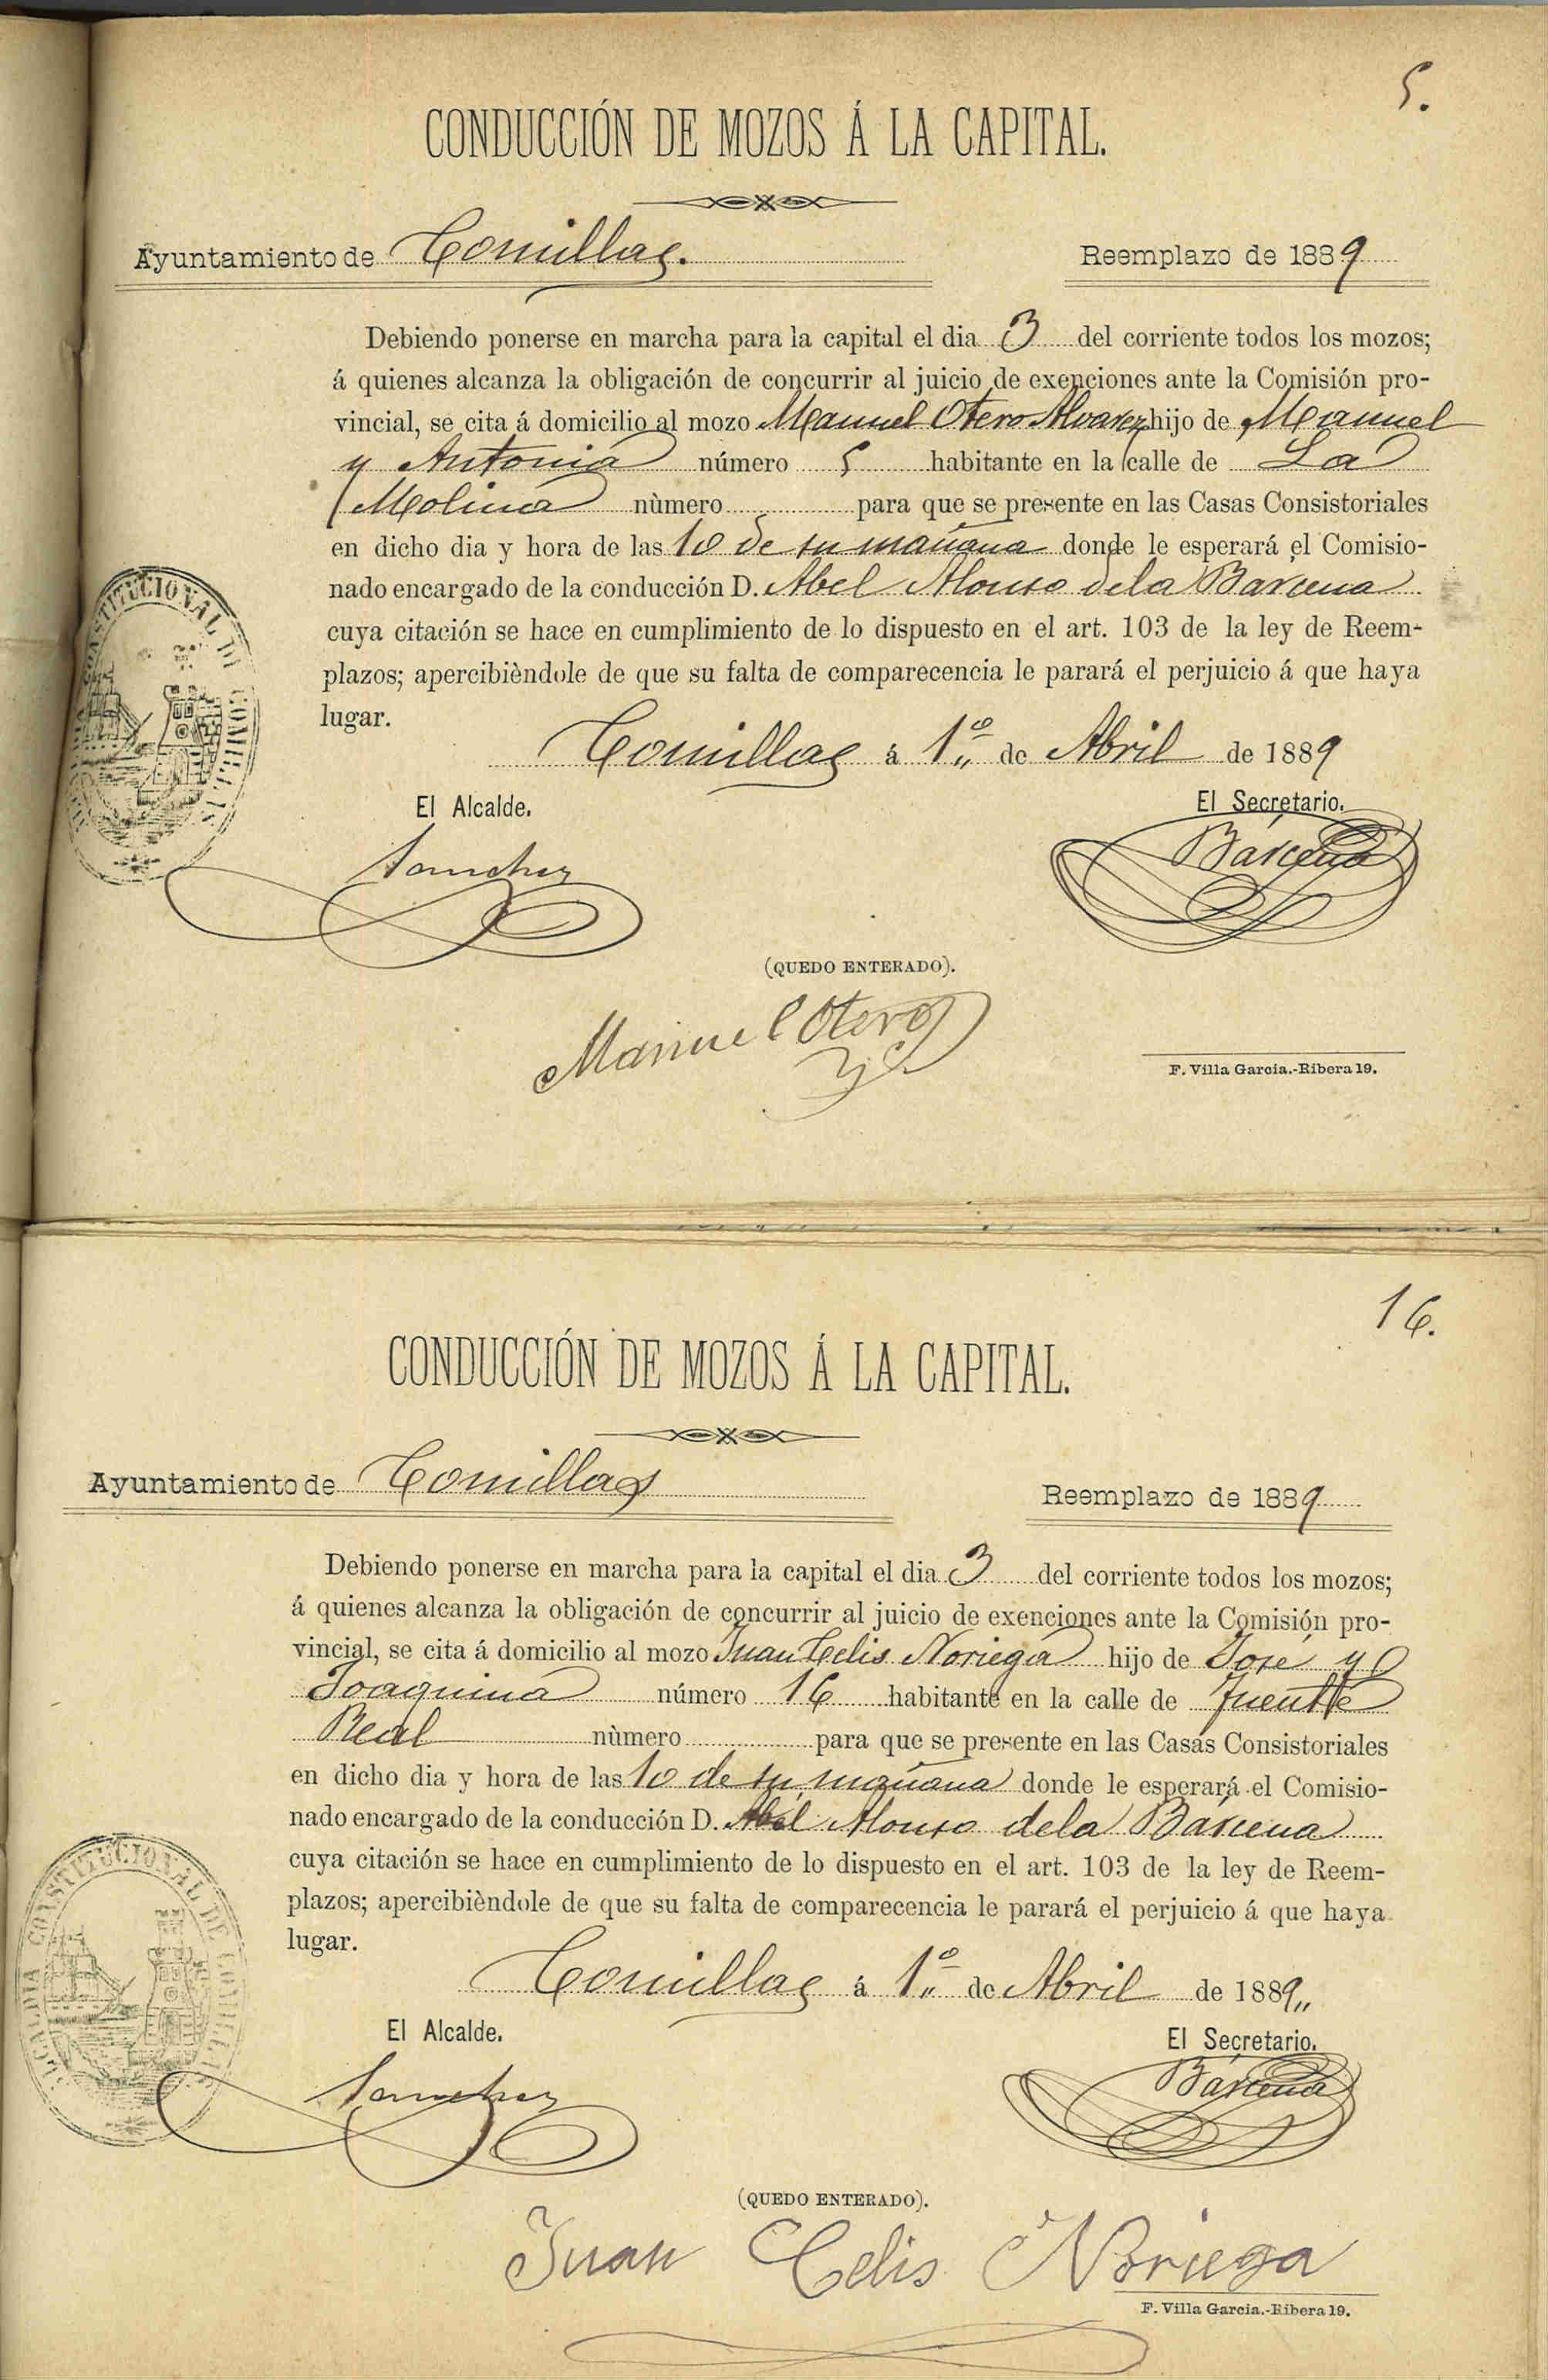 5.
CONDUCCIÓN DE MOZOS Á LA CAPITAL.
Ayuntamiento de Comillas. Reemplazo de 1889
Debiendo ponerse en marcha para la capital el dia 3 del corriente todos los mozos;
á quienes alcanza la obligación de concurrir al juicio de exenciones ante la Comisión pro-
vincial, se cita á domicilio al mozo Manuel Otero Alvarez hijo de Manuel
y Antonia número 5 habitante en la calle de La
Molina nùmero para que se presente en las Casas Consistoriales
en dicho dia y hora de las 10 de su mañana donde le esperará el Comisio-
nado encargado de la conducción D. Abel Alonso dela Barcena
cuya citación se hace en cumplimiento de lo dispuesto en el art. 103 de la ley de Reem-
plazos; apercibièndole de que su falta de comparecencia le parará el perjuicio á que haya
lugar.
Comillas á 1º de Abril de 1889
El Alcalde. El Secretario.
Sanchez Bárcena
(QUEDO ENTERADO).
Manuel Otero
F. Villa Garcia.-Ribera 19.
16.
CONDUCCIÓN DE MOZOS Á LA CAPITAL.
Ayuntamiento de Comillas Reemplazo de 1889
Debiendo ponerse en marcha para la capital el dia 3 del corriente todos los mozos;
á quienes alcanza la obligación de concurrir al juicio de exenciones ante la Comisión pro-
vincial, se cita á domicilio al mozo Juan Celis Noriega hijo de José y
Joaquina número 16 habitante en la calle de fuente
Real nùmero para que se presente en las Casas Consistoriales
en dicho dia y hora de las 10 de su mañana donde le esperará el Comisio-
nado encargado de la conducción D. Abel Alonso dela Bárcena
cuya citación se hace en cumplimiento de lo dispuesto en el art. 103 de la ley de Reem-
plazos; apercibièndole de que su falta de comparecencia le parará el perjuicio á que haya
lugar.
Comillas á 1º de Abril de 1889
El Alcalde. El Secretario.
Sanchez Bárcena
(QUEDO ENTERADO).
Juan Celis Noriega
F. Villa Garcia.-Ribera 19.